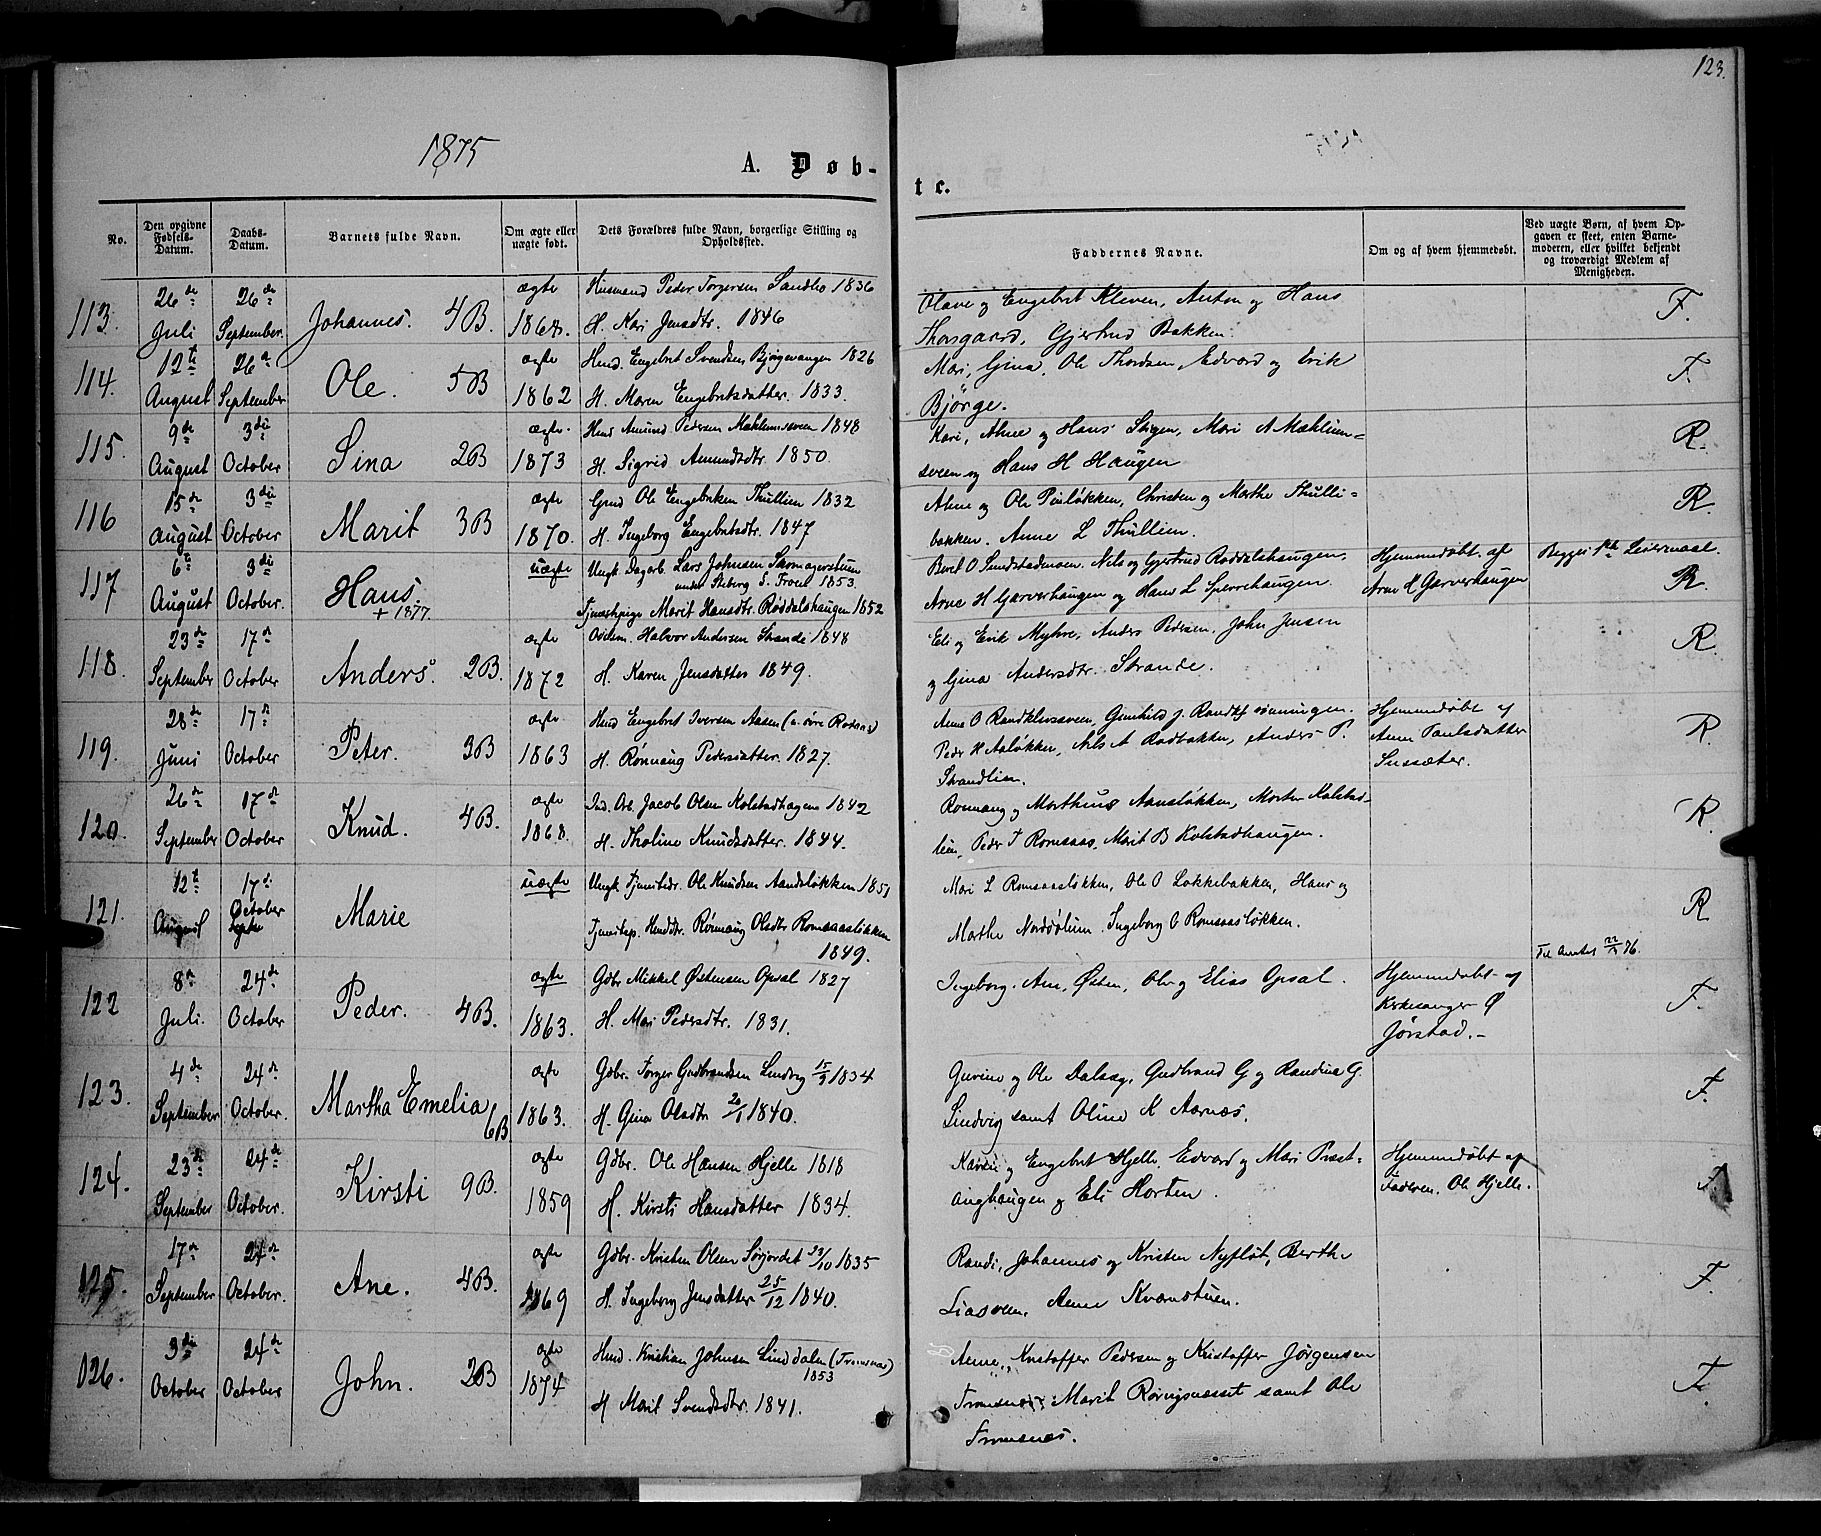 123.
1875
A. Døb-
te.
No.
Den opgivne Fødsels-Datum.
Daabs-Datum.
Barnets fulde Navn.
Om ægte eller uægte født.
Dets Forældres fulde Navn, borgerlige Stilling og Opholdssted.
Faddernes Navne.
Om og af hvem hjemmedøbt.
Ved uægte Børn, af hvem Opgaven er skeet, enten Barnemoderen, eller hvilket bekjendt og troværdigt Medlem af Menigheden.
113. 26de Juli 26de September. Johannes. 4B. ægte 1868.
Husmand Peder Torgersen Sandbo 1836
H. Kari Jensdtr. 1846
Olave og Engebret Kleven, Anton og Hans
Thorsgaard, Gjertrud Bakken.
F.
114. 12te August 26de September Ole. 5B ægte 1862
Husmd. Engebret Svendsen Bjørgevangen 1826
H. Maren Engebretsdatter. 1833.
Mari, Gina, Ole Thordsen, Edvard og Erik
Bjørge.
F.
115. 9de August 3die October Sina 2B ægte. 1873
Husmd Amund Pedersen Mæhlumsveen 1848
H. Sigrid Amundsdtr. 1850.
Kari, Anne og Hans Skogen, Mari A Mæhlum=
sveen og Hans H Haugen
R.
116 15de August 3die October Marit 3B ægte 1870.
Grmd Ole Engebretsen Thullien 1832
H. Ingeborg Engebretsdtr. 1847
Anne og Ole Pinløkken, Christen og Marthe Thulli=
bakken. Anne L Thullien.
R.
117 6te August 3die October. Hans. + 1877. uægte
Ungk. Dagarb. Lars Johnsen Skomagerstuen
under Stberg S. Froen 1853.
Tjenestepige Marit Hansdtr. Røddalshaugen 1852
Beret O Sundstadmoen. Nils og Gjertrud Røddalshaugen,
Arne H Garverhaugen og Hans L Sperrehaugen.
Hjemmedøbt af
Arne H Garverhaugen
Begges 1ste Leiermaal.
R.
118. 23de September 17de October Anders. 2B. ægte 1872
Halvor Andersen Strande 1848
H. Karen Jensdatter 1849.
Eli og Erik Myhre, Anders Pedersen, John Jensen
og Gina Andersdtr. Strande.
R.
119. 28de Juni 17de October Peter. 3B ægte 1863
Husmd Engebret Iversen Aasen
H. Rønnaug Pedersdatter. 1827.
Anne O Randklevsveen, Gunhild J.
Peder H Aaløkken, Nils A Rødbakken, Anders P.
Strandlien.
Hjemmedøbt af
Anne Paulsdatter
R.
120. 26de September 17de October Knud. 4B. ægte 1868.
Ind. Arb. Jacob Olsen Kolstadhagen 1842
H. Tholine Knudsdatter. 1844.
Rønnaug og Morthinus Aansløkken, Morten Kolstad-
lien, Peder T Romsaas, Marit B Kolstadhaugen.
R.
121. 12te August 17de October Marie uægte
Ungk. Tjenestedr. Ole Knudsen Aandsløkken 1851
Tjenestep. Rønnaug Olsdtr Romsaasløkken
1849.
Mari L Romsaasløkken, Ole O Løkkebakken, Hans og
Marthe Norddølum. Ingeborg O Romsaasløkken.
R
Til Amtet 22/1 76.
122 8de Juli. 24de October Peder. 4B. ægte 1863.
Gdbr. Mikkel Østensen Opsal 1827
H. Mari Pedersdtr. 1831.
Ingeborg, Østen, Ole og Elias Opsal.
Hjemmedøbt af
Kirkesanger Ø
Jørstad.
F.
123. 4de September 24de October. Martha Emelia 6B ægte 1863.
Gdbr. Torger Gudbrandsen Lindvig 15/9 1834
H. Gina Olsdtr 20/1 1840.
Gurine og Ole Dalseg, Gudbrand G og Randina G.
Lindvig samt Oline K Aarnes.
F.
124. 23de September 24de October. Kirsti 9B. ægte 1859
Gdbr. Ole Hansen Hjelle 1818
H. Kirsti Hansdatter 1834.
Karen og Engebret Hjelle, Edvard og Mari Præst=
anghaugen og Eli Horten.
Hjemmedøbt af
Faderen, Ole Hjelle.
F
125. 17de September 24de October. Ane. 4B. ægte 1869
Gdbr. Kristen Olsen Sørjordet 23/10 1835
H. Ingeborg Jensdatter 25/12 1840.
Randi, Johannes og Kristen Nyfløt, Berthe
Liasveen, Anne Kvernstuen.
F.
126. 3die October 24de October John. 2B ægte 1874
Husd. Kristian Johnsen Linddalen (Tromsnæs)
1853
H Marit Svendsdtr. 1841.
Anne, Kristoffer Pedersen og Kristoffer Jørgensen
Tromsnæs, Marit Røringsnesset samt Ole
Tromsnæs.
F.